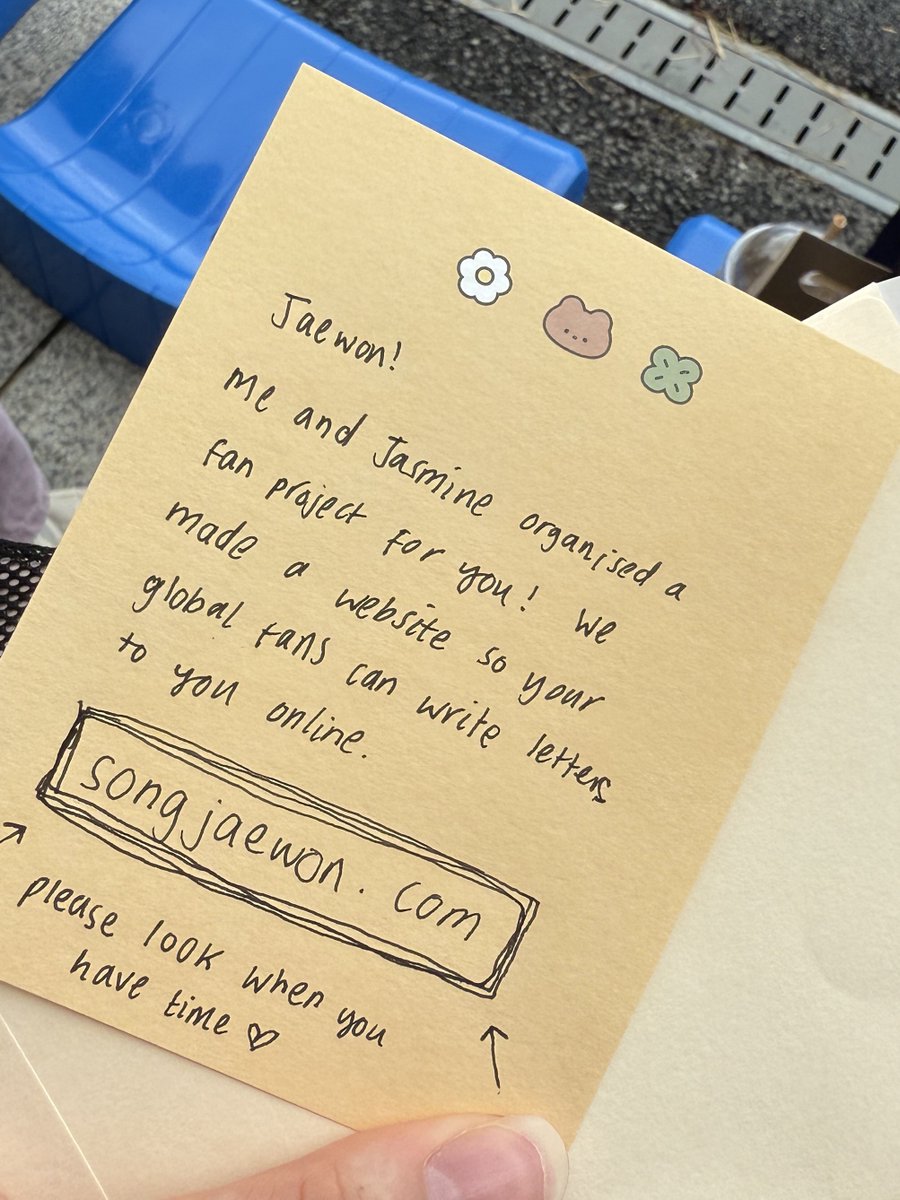 Jaewon!
Me and Jasmine organised a
fan project for you! We
made a website so your
global fans can write letters
to you online.
songjaewon.com
please look when you
have time ♡